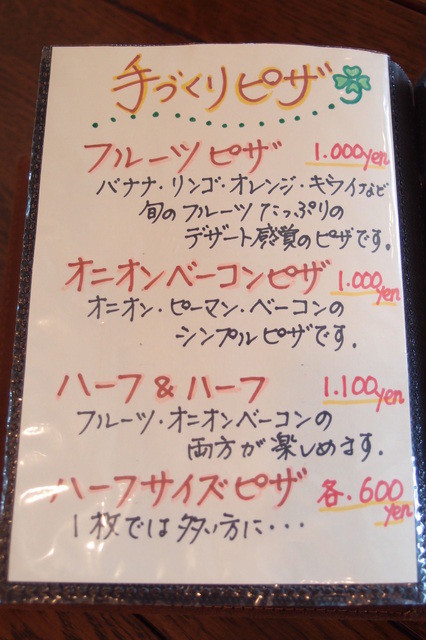 手づくりピザ
フルーツピザ 1.000yen
バナナ・リンゴ・オレンジ・キウイなど
旬のフルーツたっぷりの
デザート感覚のピザです。
オニオンベーコンピザ 1.000yen
オニオン・ピーマン・ベーコンの
シンプルピザです。
ハーフ&ハーフ 1.100yen
フルーツ・オニオンベーコンの
両方が楽しめます。
ハーフサイズピザ 各.600yen
1枚では多い方に・・・